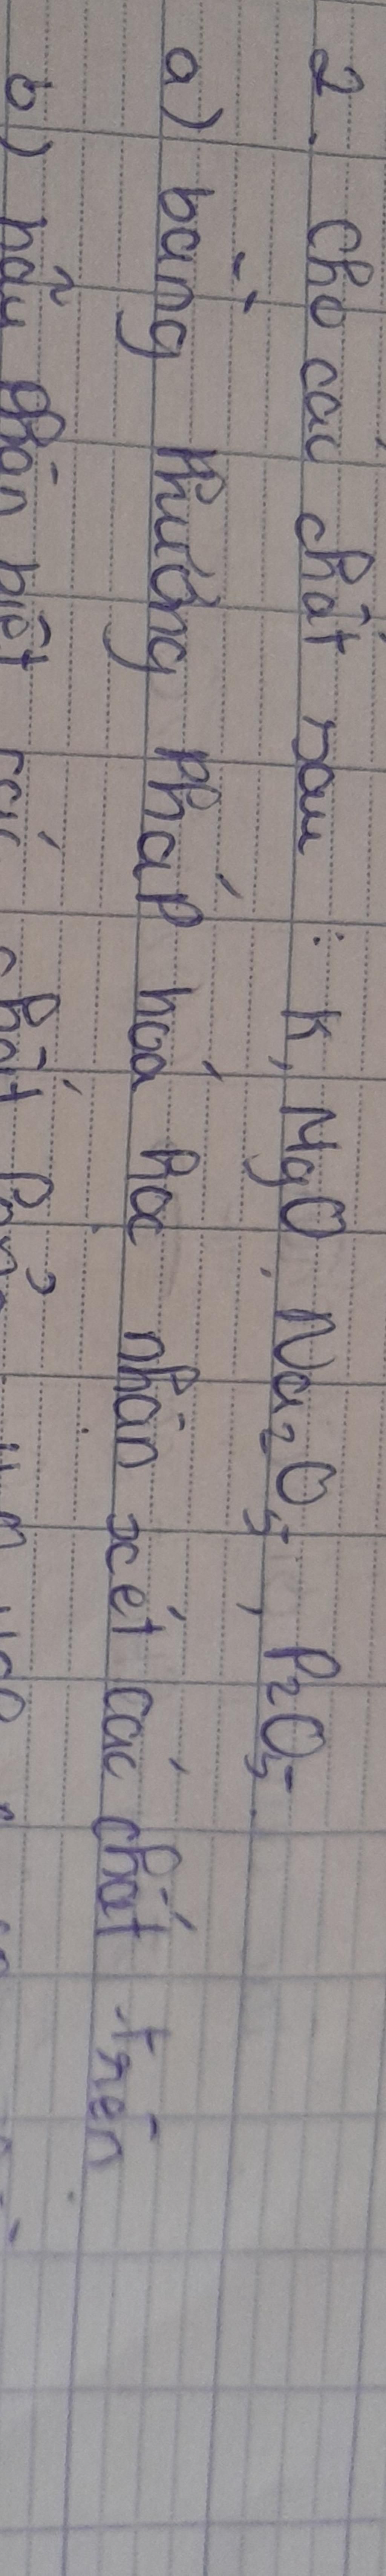 2. cho các chất sau : K, MgO, Na2O5, P2O5.
a) bằng phương pháp hoá học nhận xét các chất trên
b) hãy phân biệt các chất